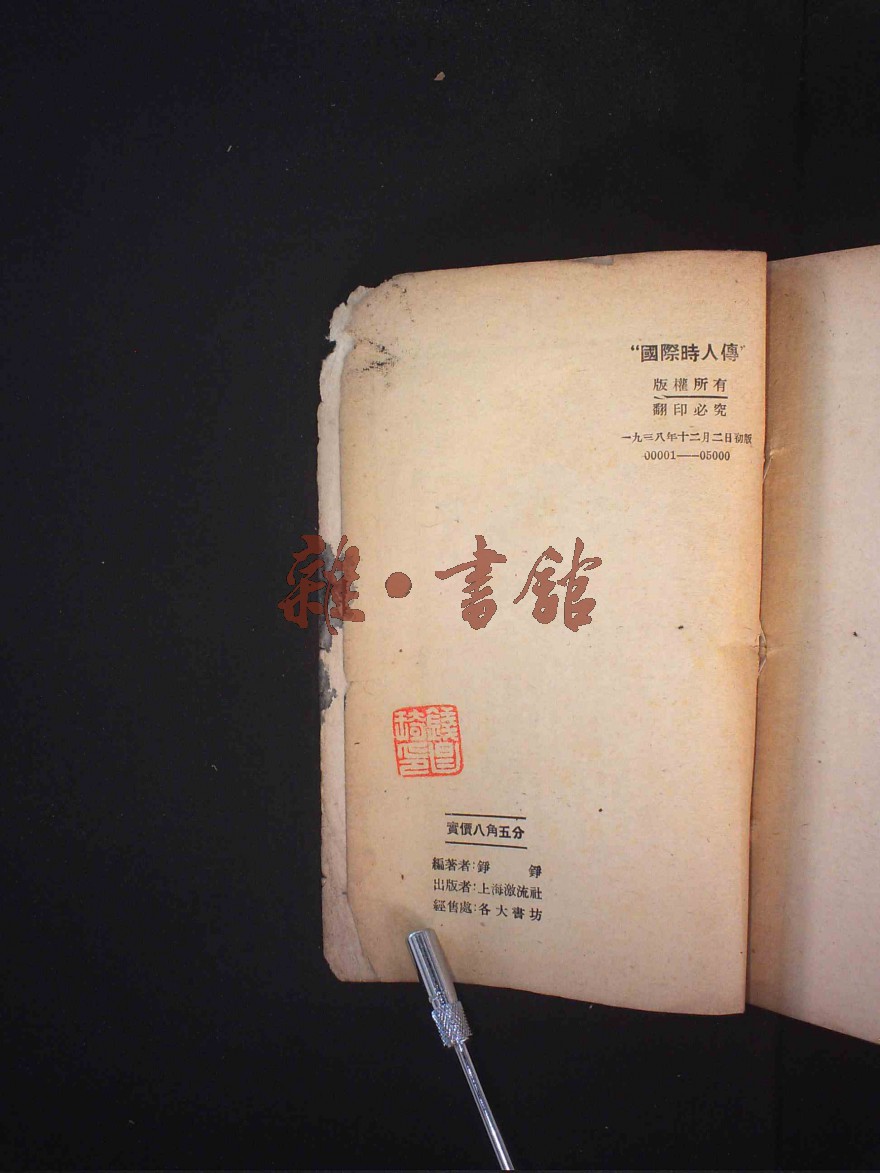 “國際時人傳”
版權所有
翻印必究
一九三八年十二月二日初版
00001——05000
雜·書館
實價八角五分
編著者:錚 錚
出版者:上海激流社
經售處:各大書坊